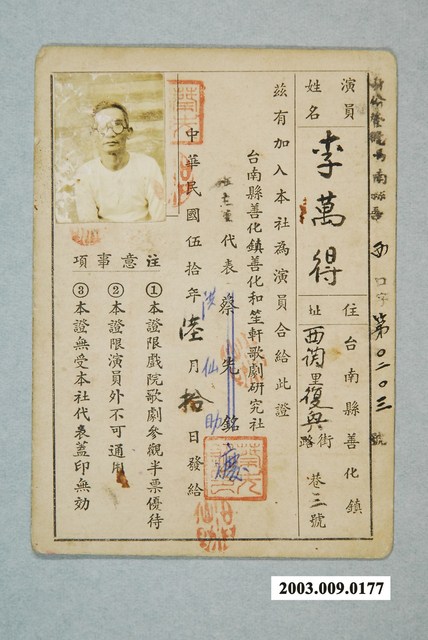 第〇二〇三號
演員姓名 李萬得 住址 台南縣善化鎮西關里復興街路 巷三號
茲有加入本社為演員合給此證
台南縣善化鎮善化和笙軒歌劇研究社
代表 蔡先銘 洪仙助
中華民國伍拾年陸月拾日發給
注意事項
①本證限戲院歌劇參觀半票優待
②本證限演員外不可通用
③本證無受本社代表蓋印無効
2003.009.0177